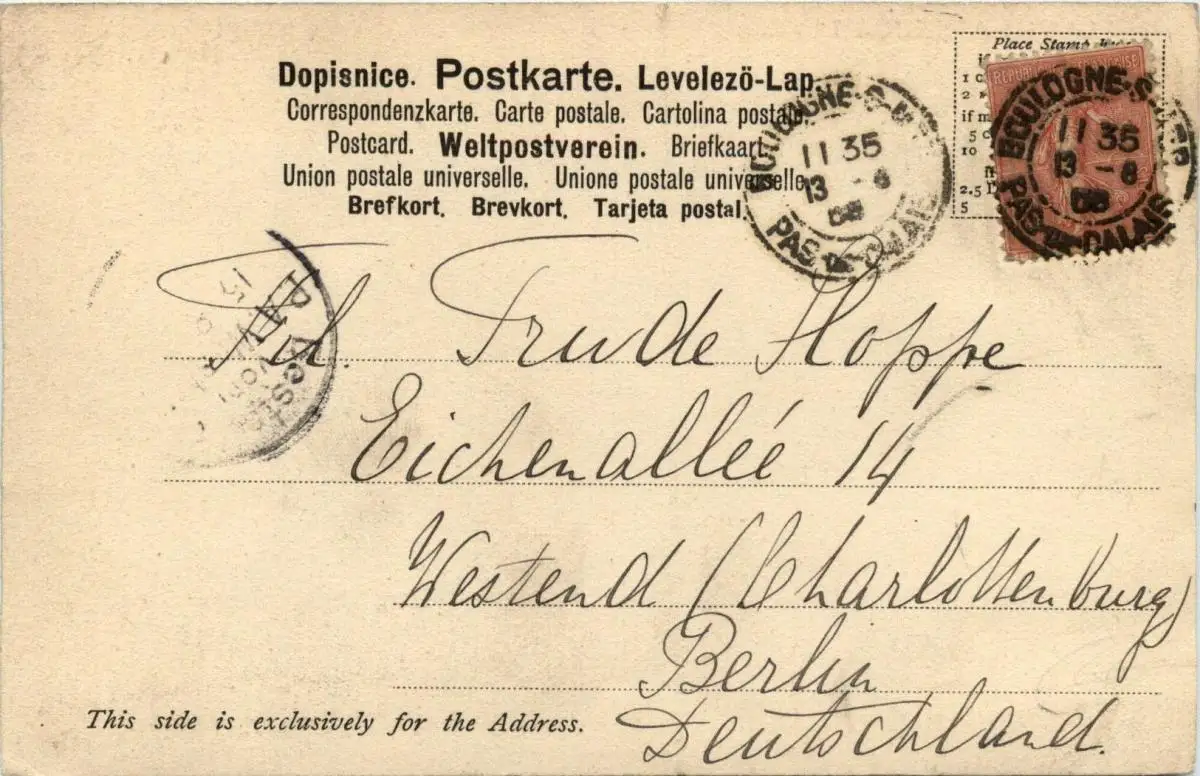 Dopisnice. Postkarte. Levelező-Lap.
Correspondenzkarte. Carte postale. Cartolina postale.
Postcard. Weltpostverein. Briefkaart.
Union postale universelle. Unione postale universelle.
Brefkort. Brevkort. Tarjeta postal.
Place Stamp
BOULOGNE-S-MER
11 35
13 - 8
PAS-DE-CALAIS
REPUBLIQUE FRANCAISE
BOULOGNE-S-MER
11 35
13 - 8
PAS-DE-CALAIS
Frl. Trude Hoppe
Eichenallée 14
Westend (Charlottenburg)
Berlin
Deutschland.
This side is exclusively for the Address.